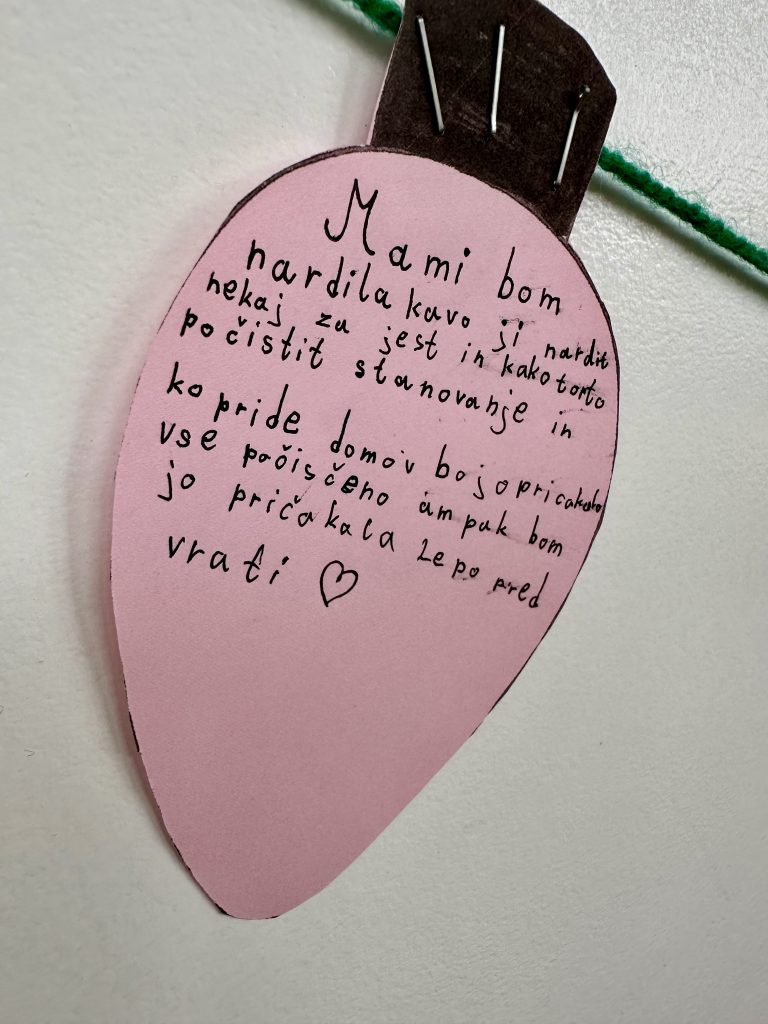 Mami bom
nardila kavo ji nardit
nekaj za jest in kako torto
počistit stanovanje in
ko pride domov bo jo pričakalo
vse počiščeno ampak bom
jo pričakala Lepo pred
vrati ♡